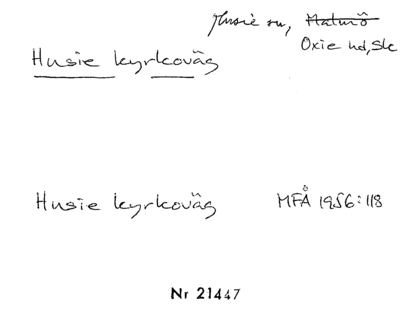 Husie sn, Malmö
Oxie hd, Sk
Husie kyrkoväg
Husie kyrkoväg MFÅ 1956:118
Nr 21447